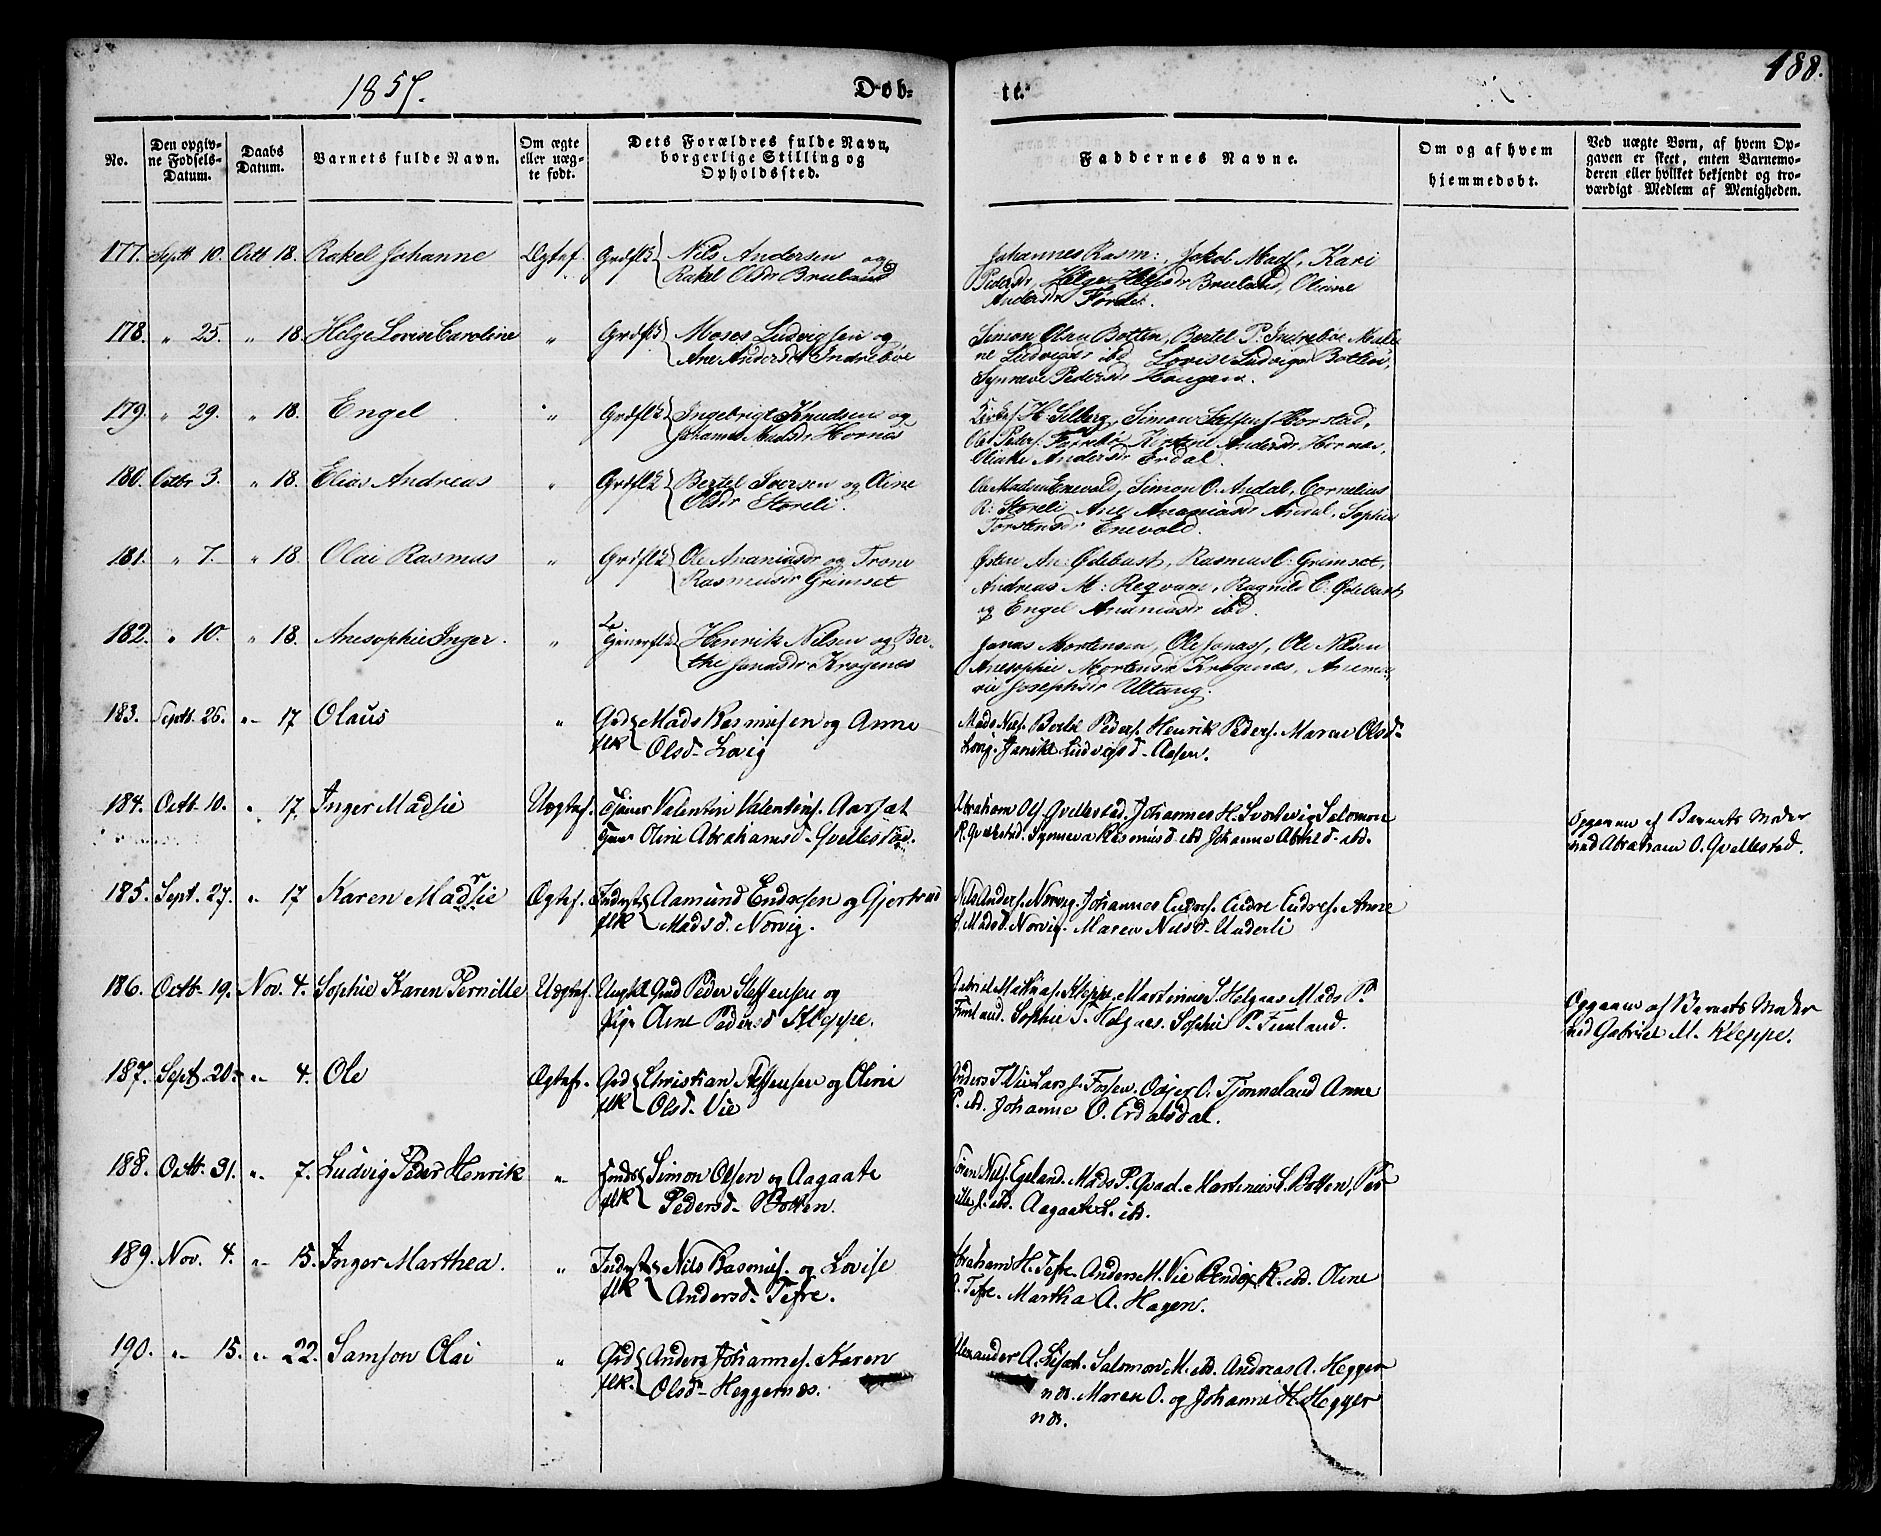 1857.
Døb-
te.
188.
No.
Den opgiv-
ne Fødsels-
Datum.
Daabs
Datum.
Barnets fulde Navn.
Om ægte
eller uæg-
te født.
Dets Forældres fulde Navn,
borgerlige Stilling og
Opholdssted.
Faddernes Navne.
Om og af hvem
hjemmedøbt.
Ved uægte Børn, af hvem Op-
gaven er skeet, enten Barnemo-
deren eller hvilket bekjendt og tro-
værdigt Medlem af Menigheden.
177. Septb 10. Octb 18. Rakel Johanne Ægtef. Grdflk Nils Andersen og
Rakel Olsdr Bruland
Johannes Rasm:, Jakob Mads., Kari
Pedersdr, Helge Bruland, Oline
Andersdr Førde.
178. " 25. " 18. Helge Lovise Caroline " Grdflk Moses Ludvigsen og
Ane Andersdr Indrebøe
Simon Olsen Botten, Bertel P. Indrebøe,
ne Ludvigsdr ibd Lovise Ludvigsdr Botten,
Synneve Pedersdr Haugen.
179. " 29. " 18. Engel " Grdflk Ingebrigt Knudsen og
Johanne Hornes
H. Solberg, Simon Steffens Horstad,
Ole Peders. Kirstine Andersdr Hornæs,
Andersdr Erdal.
180. Octbr 3. " 18. Elias Andreas " Grdflk Bertel Iversen og Oline
Olsdr Storeli.
Ole Madsen Enevold, Simon O. Andal, Cornelius
R. Storeli Ane Ananiasdr Andal, Sophie
Torstensdr Enevold.
181. " 7. " 18. Olai Rasmus " Grdflk Ole Ananias og Trone
Rasmusdr Grimset
Østen An: Ødebust, Rasmus O: Grimset,
Andreas M: Reqvam, Ragnild
og Engel Ananiasdr ibd.
182. " 10. " 18. Anesophie Inger. " Tjenerflk Henrik Nilsen og Ber-
the Jonasdr Krogenes
Jonas Mortensen, Ole Jonass, Ole Nilsen
Anesophie Mortensdr Krogenæs, Anema-
rie Josephsdr Ultang.
183. Septb. 26. " 17 Olaus " Grd Mads Rasmussen og Anne
flk Olsd. Lovig
Mads Nils. Bertil Peders. Henrik Peders. Maren Olsd.
Ludvigsd. Aasen.
184. Octb. 10. " 17. Inger Madsie Uægtef. Tjener Valentin Valentins. Aarsæt
Tjener Oline Abrahamsd. Gvellestad.
Abraham Ols Gvellestad. Johannes H. Salomon
R. Gvellestad. Synneva Rasmusd ibd Johanne ibd.
Opgaven af Barnets Moder
ved Abraham O. Gvellestad.
185. Sept. 27. " 17 Karen Madsie Ægtef. Indrst Aamund Endresen og Gjertrud
flk Madsd. Norvig.
Nils Anders. Norvig. Johannes Endres. Endre Endres. Anne
Madsd. Norvig. Maren Nilsd. Underli
186. Octb. 19. Nov. 4. Sophie Karen Pernille Uægtef. Ungkl Grd Peder Steffensen og
Pige Ane Pedersd Kleppe.
Gabriel Mathias. Kleppe Martinus S. Helgaas Mads P.
Sophie S. Helgaas. Sophie P. Funland.
Opgaven af Barnets Moder
ved Gabriel M. Kleppe.
187. Sept. 20. " 4. Ole Ægtef. Grd Christian Steffensen og Oline
flk Olsd. Vie
Anders T. Vie Lars J. Fossen. O. Tjønneland Anne
P. ibd. Johanne O. Erdalsdal.
188. Octb. 31. " 7. Ludvig Peder Henrik " Simon Olsen og Aagaate
flk Pedersd. Botten.
Søren Nils. Egeland. Mads P. Qvad. Martinus S. Botten, Per-
nille S. ibd. Aagaate L. ibd.
189. Nov. 4. " 15. Inger Marthea. " Indrst Nils Rasmus. og Lovise
flk Andersd. Tefre.
Abraham H. Tefre. Anders M. Vie Bendix R. ibd. Oline
A. Tefre. Martha A. Hagen.
190. " 15. " 22. Samson Olai " Grd Anders Johannes. Karen
flk. Olsd. Heggernæs.
Alexander A. Salomon M. ibd. Andreas A. Hegger
næs. Maren O. og Johanne H. Hegger
næs.